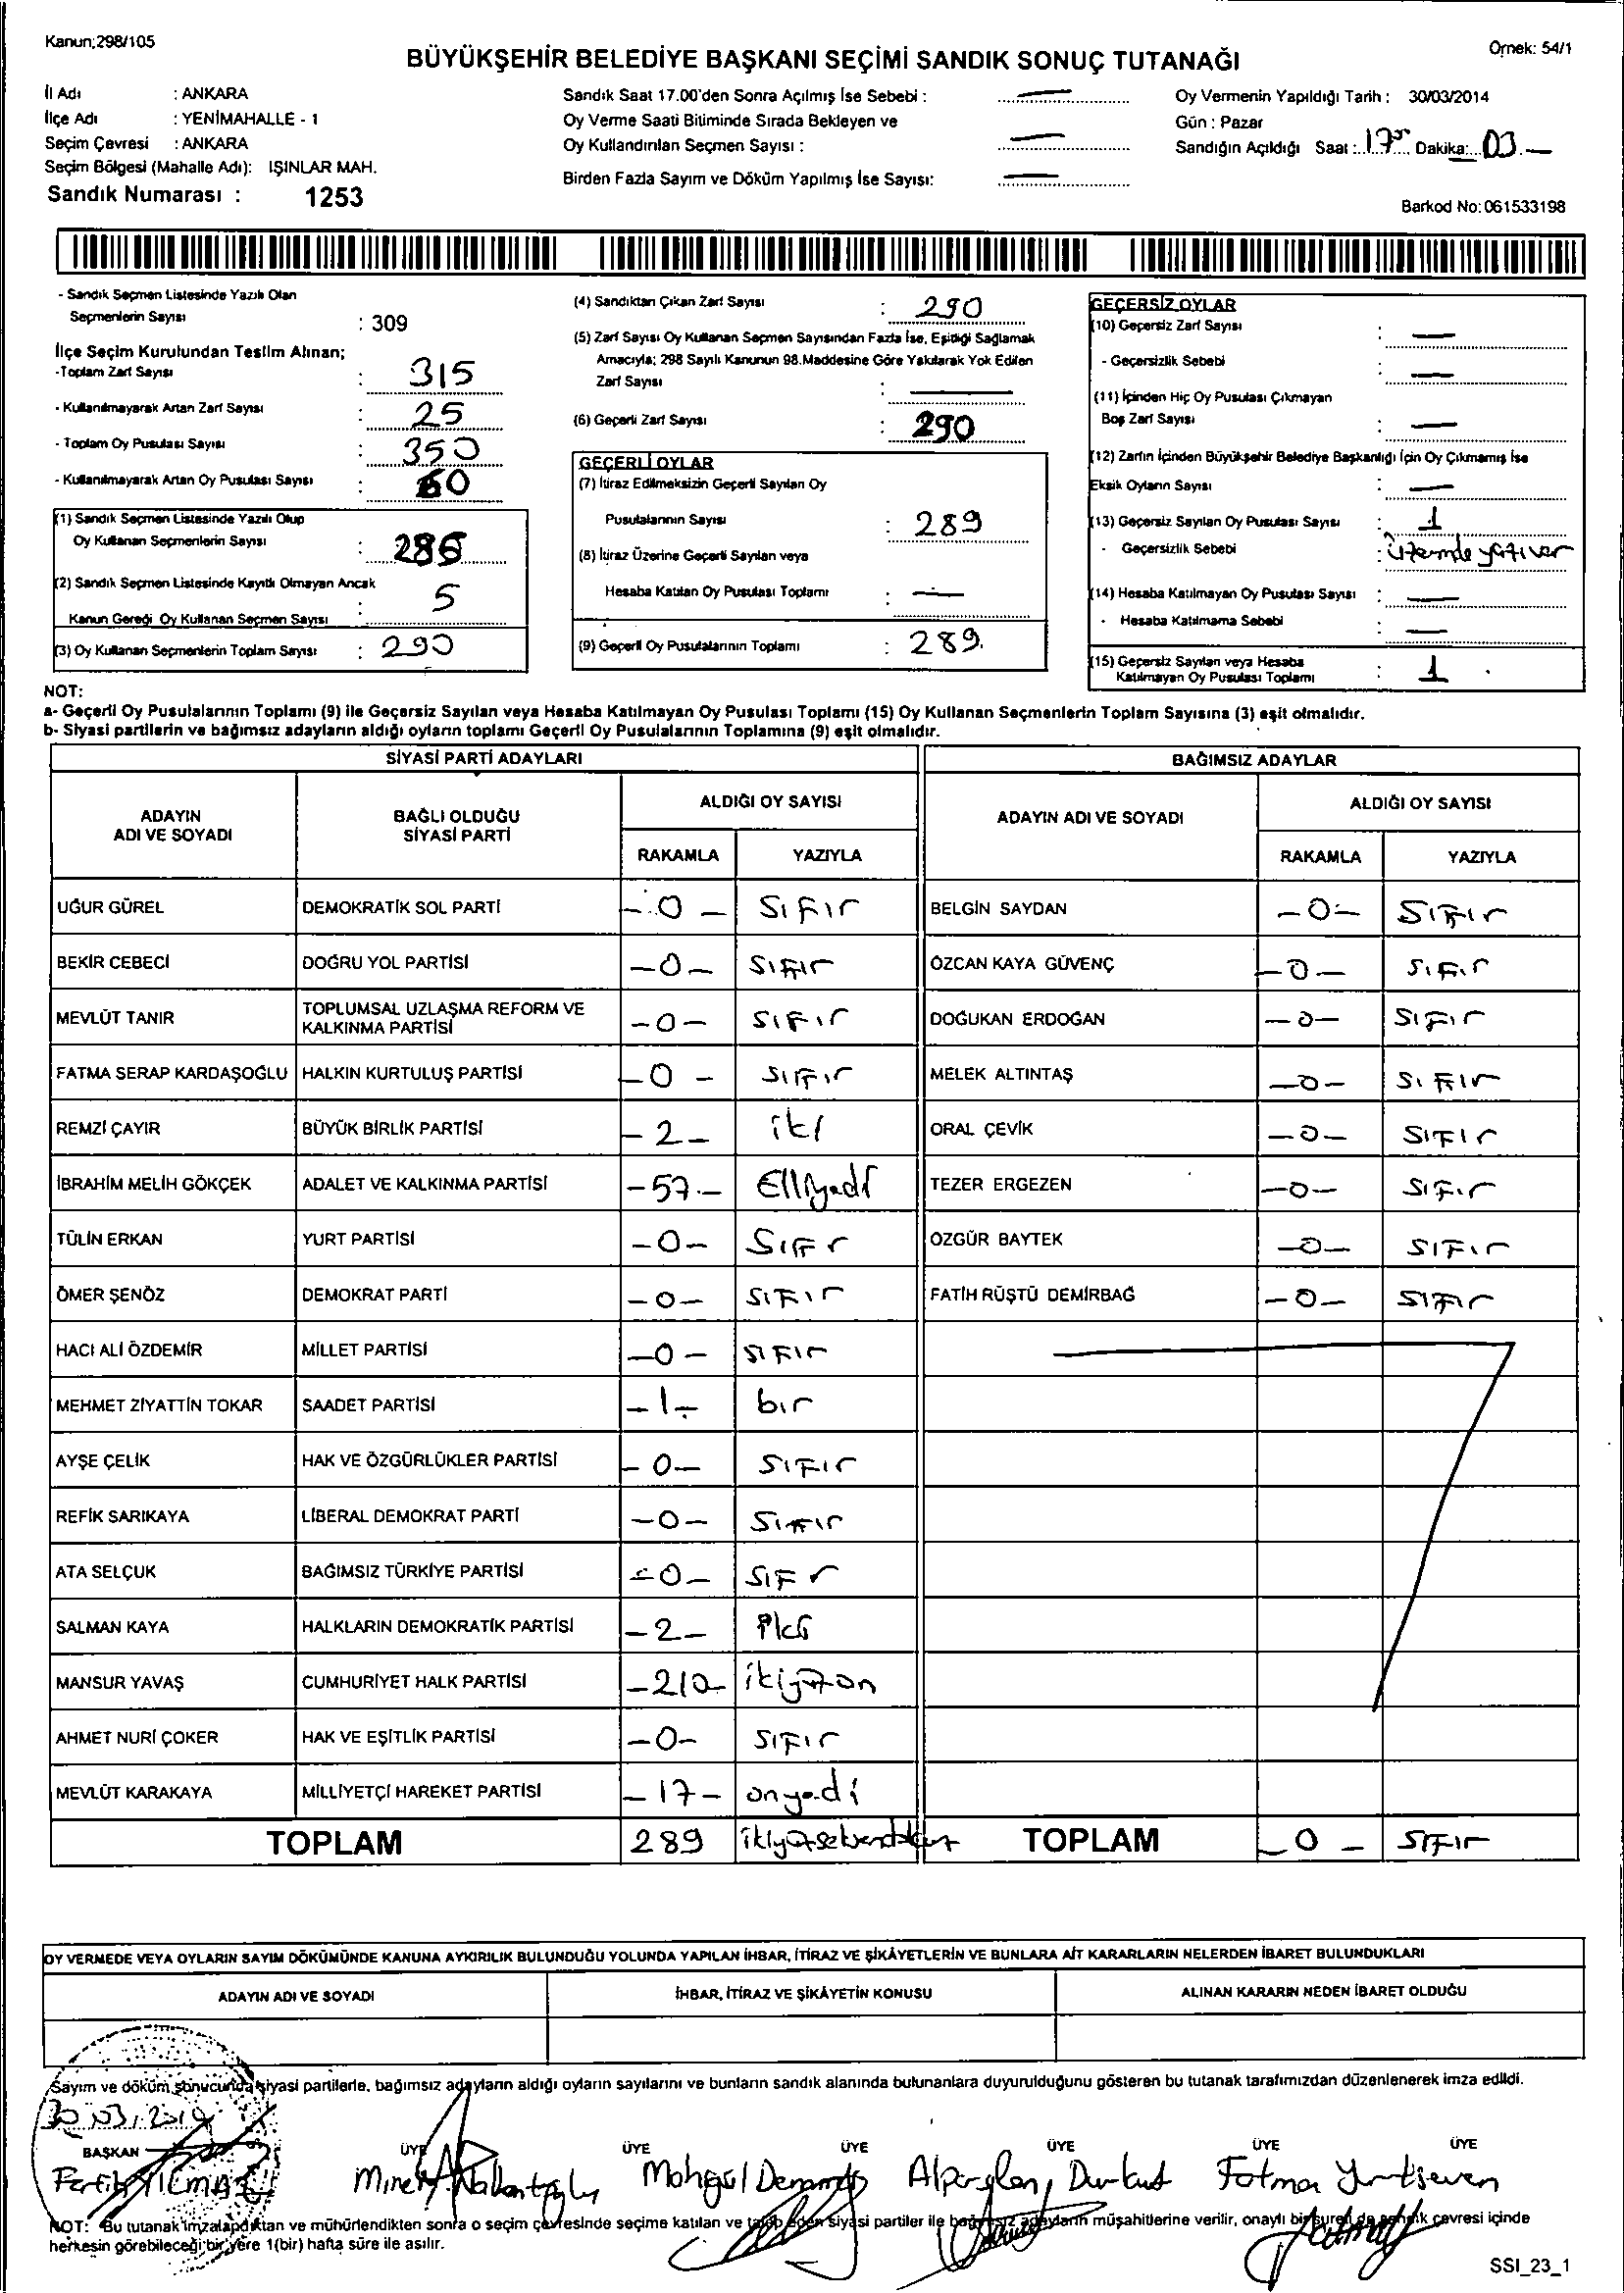 Kanun;298/105
Örnek: 54/1
BÜYÜKŞEHİR BELEDİYE BAŞKANI SEÇİMİ SANDIK SONUÇ TUTANAĞI
İl Adı : ANKARA
İlçe Adı : YENİMAHALLE - 1
Seçim Çevresi : ANKARA
Seçim Bölgesi (Mahalle Adı): IŞINLAR MAH.
Sandık Numarası : 1253
Sandık Saat 17.00'den Sonra Açılmış İse Sebebi : —
Oy Verme Saati Bitiminde Sırada Bekleyen ve
Oy Kullandırılan Seçmen Sayısı : —
Birden Fazla Sayım ve Döküm Yapılmış İse Sayısı: —
Oy Vermenin Yapıldığı Tarih : 30/03/2014
Gün : Pazar
Sandığın Açıldığı Saat : 17 Dakika: 03.—
Barkod No: 061533198
- Sandık Seçmen Listesinde Yazılı Olan
Seçmenlerin Sayısı : 309
İlçe Seçim Kurulundan Teslim Alınan;
-Toplam Zarf Sayısı : 315
- Kullanılmayarak Artan Zarf Sayısı : 25
- Toplam Oy Pusulası Sayısı : 350
- Kullanılmayarak Artan Oy Pusulası Sayısı : 60
(1) Sandık Seçmen Listesinde Yazılı Olup
Oy Kullanan Seçmenlerin Sayısı :
(2) Sandık Seçmen Listesinde Kayıtlı Olmayan Ancak
Kanun Gereği Oy Kullanan Seçmen Sayısı : 5
(3) Oy Kullanan Seçmenlerin Toplam Sayısı : 290
(4) Sandıktan Çıkan Zarf Sayısı : 290
(5) Zarf Sayısı Oy Kullanan Seçmen Sayısından Fazla İse, Eşitliği Sağlamak
Amacıyla; 298 Sayılı Kanunun 98.Maddesine Göre Yakılarak Yok Edilen
Zarf Sayısı : —
(6) Geçerli Zarf Sayısı : 290
GEÇERLİ OYLAR
(7) İtiraz Edilmeksizin Geçerli Sayılan Oy
Pusulalarının Sayısı : 289
(8) İtiraz Üzerine Geçerli Sayılan veya
Hesaba Katılan Oy Pusulası Toplamı : —
(9) Geçerli Oy Pusulalarının Toplamı : 289.
GEÇERSİZ OYLAR
(10) Geçersiz Zarf Sayısı : —
- Geçersizlik Sebebi : —
(11) İçinden Hiç Oy Pusulası Çıkmayan
Boş Zarf Sayısı : —
(12) Zarfın İçinden Büyükşehir Belediye Başkanlığı İçin Oy Çıkmamış İse
Eksik Oyların Sayısı : —
(13) Geçersiz Sayılan Oy Pusulası Sayısı : 1
- Geçersizlik Sebebi : üzerinde yazı var
(14) Hesaba Katılmayan Oy Pusulası Sayısı : —
- Hesaba Katılmama Sebebi : —
(15) Geçersiz Sayılan veya Hesaba
Katılmayan Oy Pusulası Toplamı : 1
NOT:
a- Geçerli Oy Pusulalarının Toplamı (9) ile Geçersiz Sayılan veya Hesaba Katılmayan Oy Pusulası Toplamı (15) Oy Kullanan Seçmenlerin Toplam Sayısına (3) eşit olmalıdır.
b- Siyasi partilerin ve bağımsız adayların aldığı oyların toplamı Geçerli Oy Pusulalarının Toplamına (9) eşit olmalıdır.
SİYASİ PARTİ ADAYLARI
BAĞIMSIZ ADAYLAR
ADAYIN ADI VE SOYADI BAĞLI OLDUĞU SİYASİ PARTİ ALDIĞI OY SAYISI RAKAMLA YAZIYLA
ADAYIN ADI VE SOYADI ALDIĞI OY SAYISI RAKAMLA YAZIYLA
UĞUR GÜREL DEMOKRATİK SOL PARTİ - 0 - Sıfır BELGİN SAYDAN - 0 - Sıfır
BEKİR CEBECİ DOĞRU YOL PARTİSİ - 0 - Sıfır ÖZCAN KAYA GÜVENÇ - 0 - Sıfır
MEVLÜT TANIR TOPLUMSAL UZLAŞMA REFORM VE KALKINMA PARTİSİ - 0 - Sıfır DOĞUKAN ERDOĞAN - 0 - Sıfır
FATMA SERAP KARDAŞOĞLU HALKIN KURTULUŞ PARTİSİ - 0 - Sıfır MELEK ALTINTAŞ - 0 - Sıfır
REMZİ ÇAYIR BÜYÜK BİRLİK PARTİSİ - 2 - iki ORAL ÇEVİK - 0 - Sıfır
İBRAHİM MELİH GÖKÇEK ADALET VE KALKINMA PARTİSİ - 57 - Elliyedi TEZER ERGEZEN - 0 - Sıfır
TÜLİN ERKAN YURT PARTİSİ - 0 - Sıfır ÖZGÜR BAYTEK - 0 - Sıfır
ÖMER ŞENÖZ DEMOKRAT PARTİ - 0 - Sıfır FATİH RÜŞTÜ DEMİRBAĞ - 0 - Sıfır
HACI ALİ ÖZDEMİR MİLLET PARTİSİ - 0 - Sıfır
MEHMET ZİYATTİN TOKAR SAADET PARTİSİ - 1 - bir
AYŞE ÇELİK HAK VE ÖZGÜRLÜKLER PARTİSİ - 0 - Sıfır
REFİK SARIKAYA LİBERAL DEMOKRAT PARTİ - 0 - Sıfır
ATA SELÇUK BAĞIMSIZ TÜRKİYE PARTİSİ - 0 - Sıfır
SALMAN KAYA HALKLARIN DEMOKRATİK PARTİSİ - 2 - iki
MANSUR YAVAŞ CUMHURİYET HALK PARTİSİ - 210 - ikiyüzon
AHMET NURİ ÇOKER HAK VE EŞİTLİK PARTİSİ - 0 - Sıfır
MEVLÜT KARAKAYA MİLLİYETÇİ HAREKET PARTİSİ - 17 - onyedi
TOPLAM 289 ikiyüzseksendokuz TOPLAM - 0 - Sıfır
OY VERMEDE VEYA OYLARIN SAYIM DÖKÜMÜNDE KANUNA AYKIRILIK BULUNDUĞU YOLUNDA YAPILAN İHBAR, İTİRAZ VE ŞİKÂYETLERİN VE BUNLARA AİT KARARLARIN NELERDEN İBARET BULUNDUKLARI
ADAYIN ADI VE SOYADI İHBAR, İTİRAZ VE ŞİKÂYETİN KONUSU ALINAN KARARIN NEDEN İBARET OLDUĞU
Sayım ve döküm sonucunda siyasi partilerle, bağımsız adayların aldığı oyların sayılarını ve bunların sandık alanında bulunanlara duyurulduğunu gösteren bu tutanak tarafımızdan düzenlenerek imza edildi.
30.03.2014
BAŞKAN ÜYE ÜYE ÜYE ÜYE ÜYE ÜYE
Fatih YILMAZ Mahgül Alparslan Durkut Fatma Yurtseven
NOT: Bu tutanak imzalandıktan ve mühürlendikten sonra o seçim çevresinde seçime katılan ve talep eden siyasi partiler ile bağımsız adayların müşahitlerine verilir, onaylı bir sureti de sandık çevresi içinde
herkesin görebileceği bir yere 1(bir) hafta süre ile asılır.
SSI_23_1